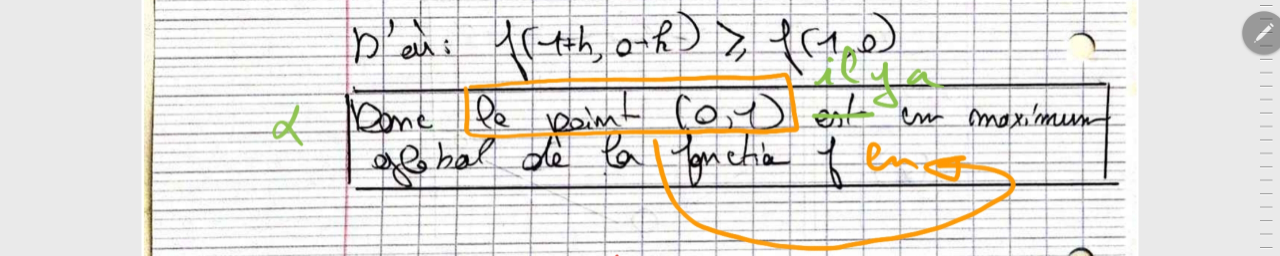 D'où : f(1+h, 0+k) ≥ f(1,0)
il y a
α Donc le point (0,1) est un maximum
global de la fonction f en